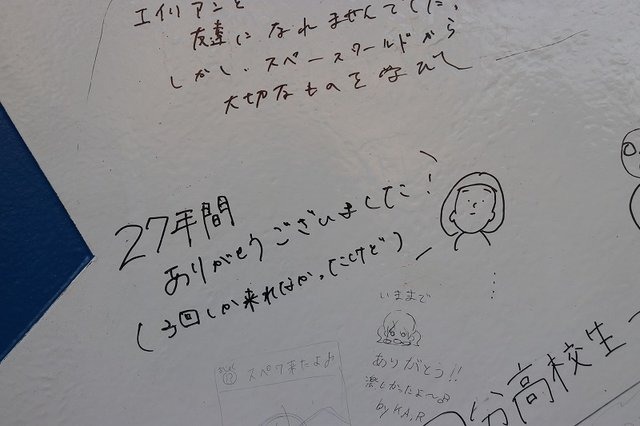 エイリアンと
友達になれませんでした。
しかし、スペースワールドから
大切なものを学んで
27年間
ありがとうございました!
(3回しか来れなかったけど)
いままで
ありがとう!!
楽しかったよ〜♪
by KA,R
スペワ来たよ♪
分高校生